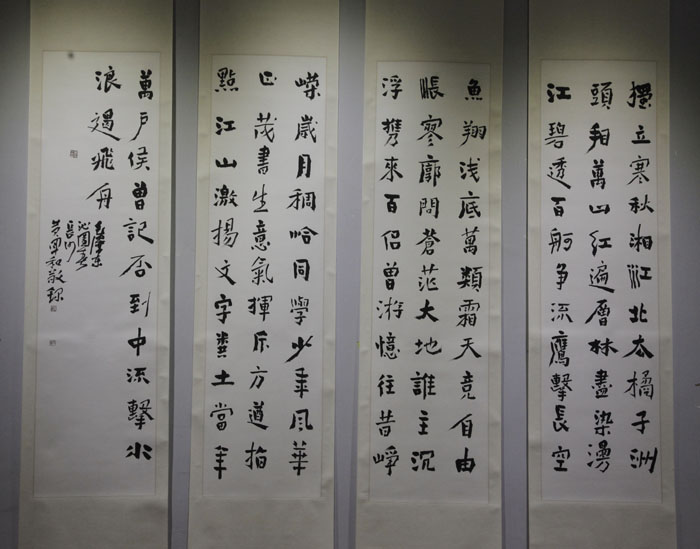 獨立寒秋湘江北去橘子洲
頭看萬山紅遍層林盡染漫
江碧透百舸争流鷹擊長空
魚翔浅底萬類霜天竞自由
悵寥廓問蒼茫大地誰主沉
浮携來百侣曾游憶往昔峥
嵘歲月稠恰同學少年風華
正茂書生意氣揮斥方遒指
點江山激揚文字糞土當年
萬户侯曾記否到中流擊水
浪遏飛舟
毛澤東
沁園春
長沙